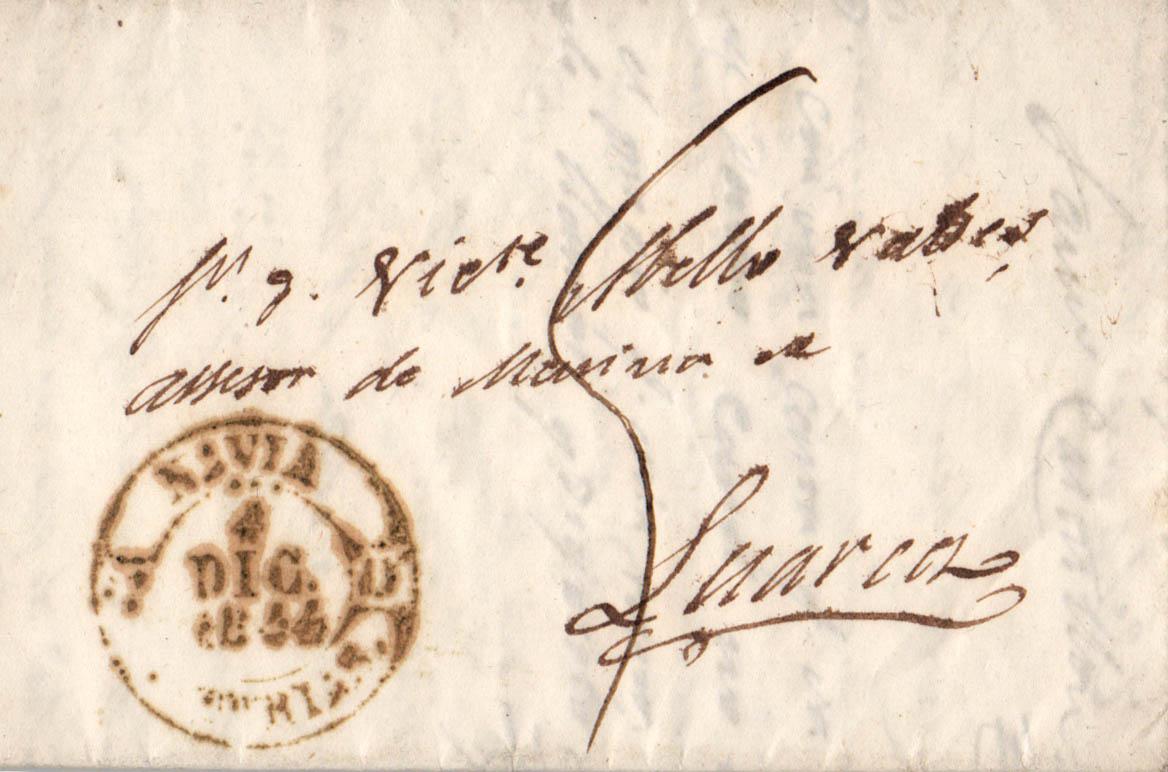 Sr. D. Victe. Abello Valdes
assesor de Marina de
Luarca
NAVIA
4
DIC.
1844